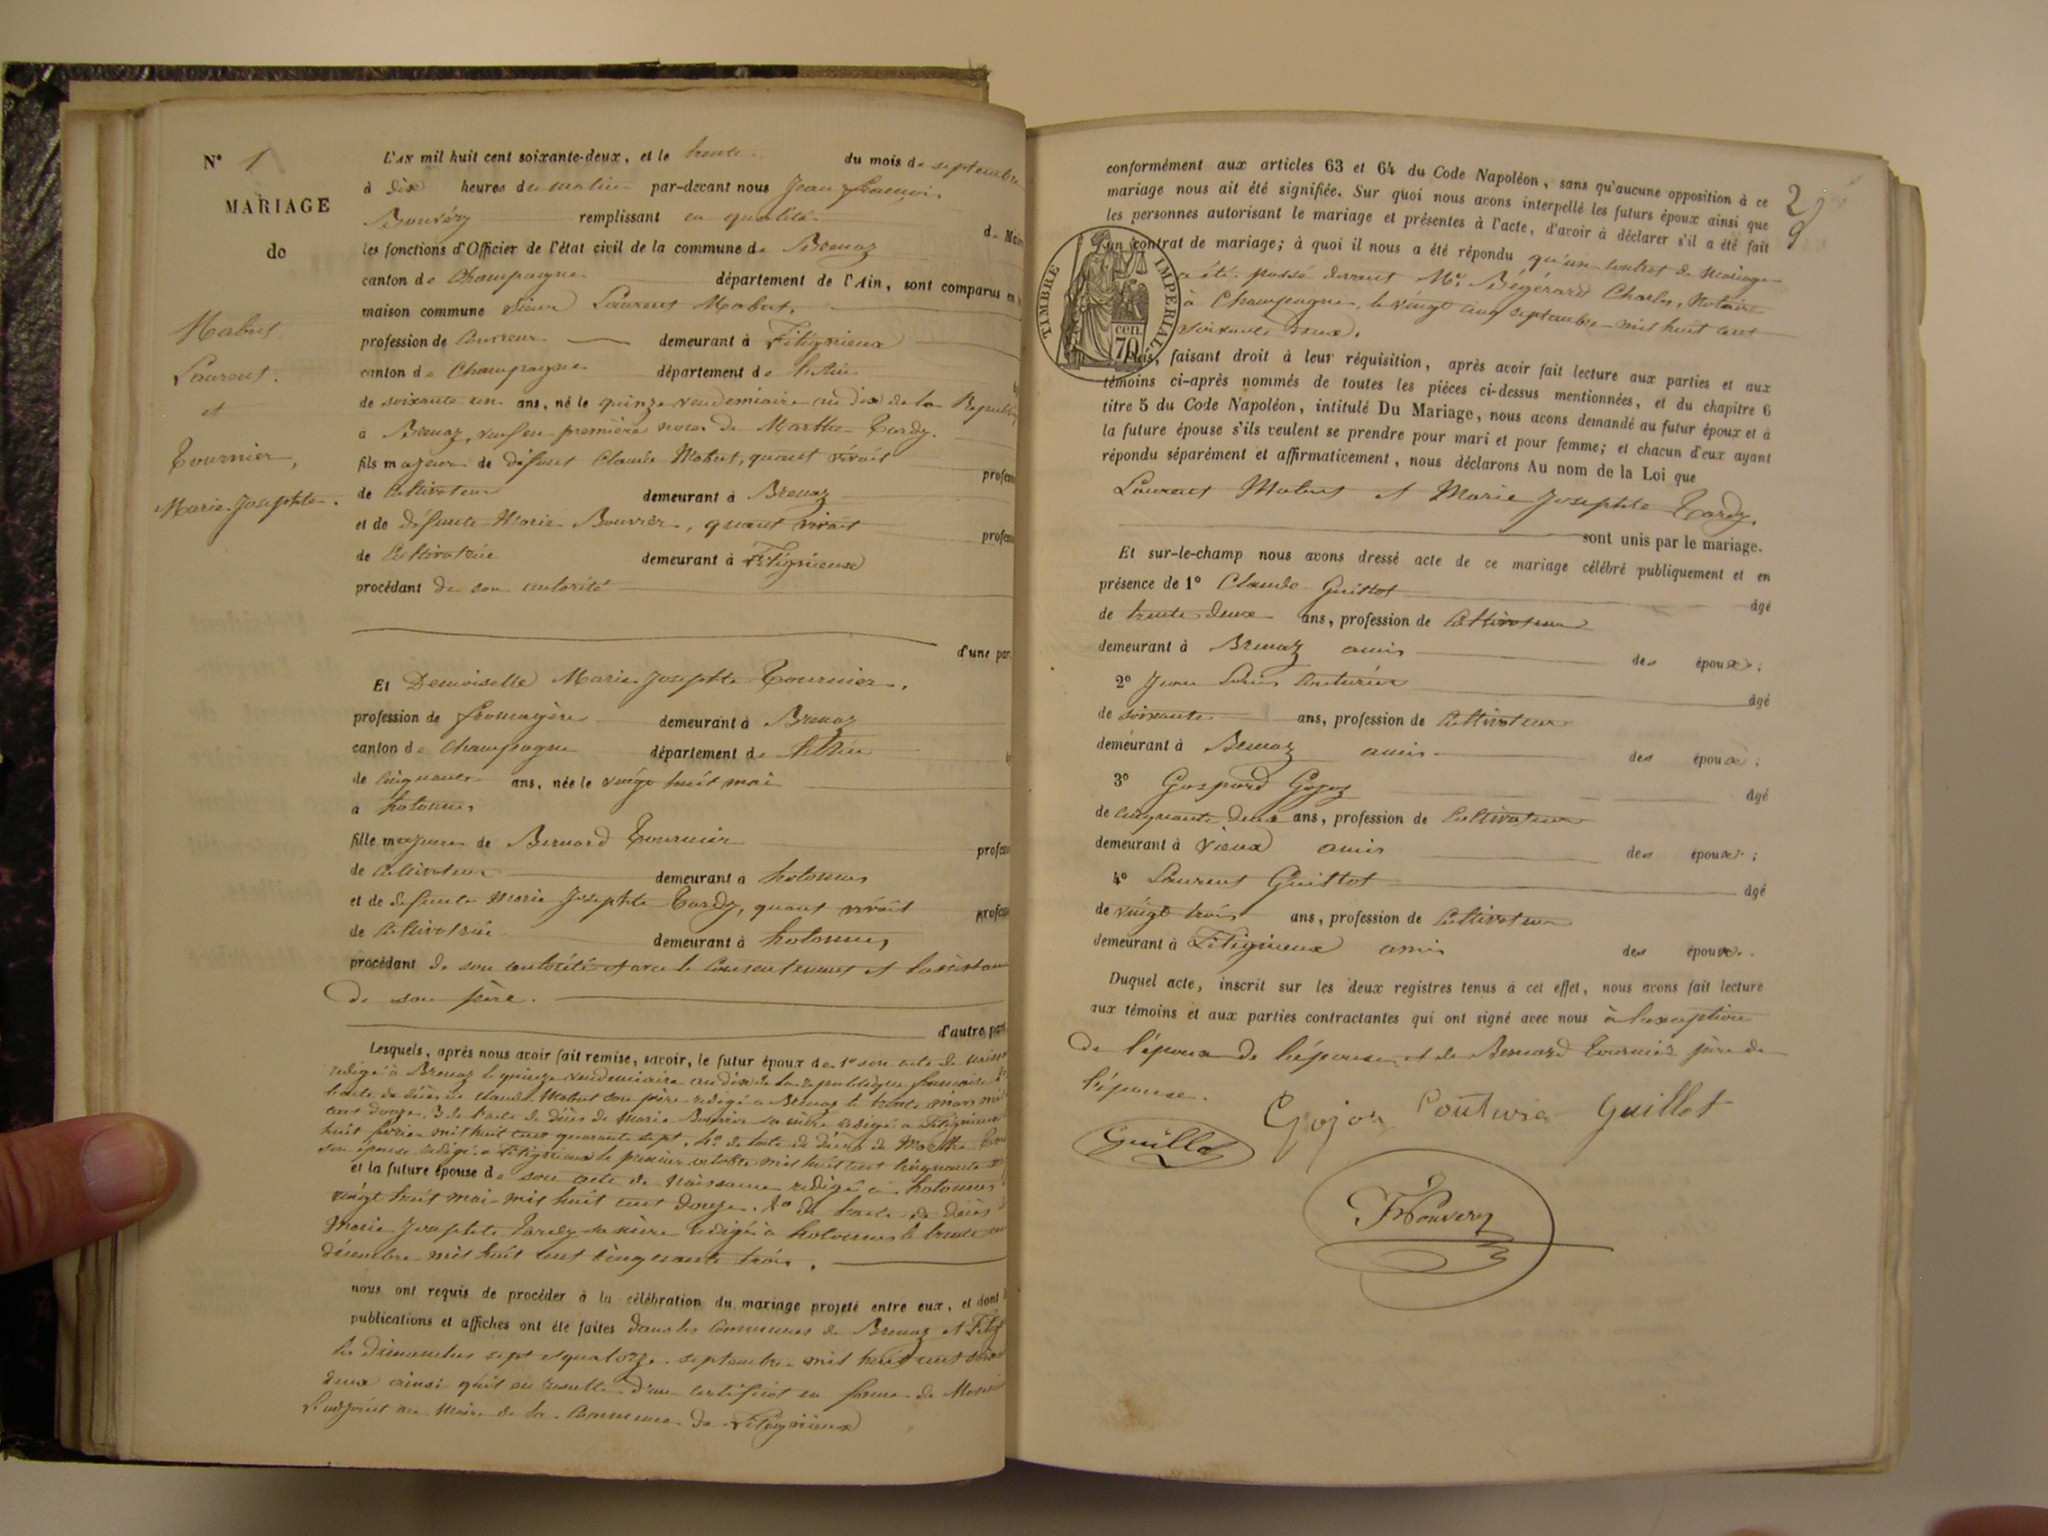 N° 1
MARIAGE
de
Mabut
Laurent.
et
Tournier,
Marie Josephte.
L'AN mil huit cent soixante-deux, et le trente du mois de septembre
à dix heures du matin par-devant nous Jean François
Bouvéry remplissant en qualité de Maire
les fonctions d'Officier de l'état civil de la commune de Brenaz
canton de Champagne département de l'Ain, sont comparus en
maison commune Sieur Laurent Mabut,
profession de demeurant à Fitignieux
canton de Champagne département de l'Ain
de soixante un ans, né le quinze vendémiaire an dix de la Républ
à Brenaz, veuf en première noces de Marthe Tardy.
fils majeur de défunt Claude Mabut, quant vivait profess
de Cultivateur demeurant à Brenaz
et de défunte Marie Bouvier, quant vivait profess
de Cultivatrice demeurant à Fitignieux
procédant de son autorité
d'une par
Et Demoiselle Marie Josephte Tournier.
profession de fromagère demeurant à Brenaz
canton de Champagne département de l'Ain
de cinquante ans, née le vingt huit mai
à hotonnes
fille majeure de Bernard Tournier profess
de Cultivateur demeurant à hotonnes
et de défunte Marie Josephte Tardy, quant vivait profess
de Cultivatrice demeurant à hotonnes
procédant de son autorité et avec le Consentement et l'assistan
de son père.
d'autre part
Lesquels, après nous avoir fait remise, savoir, le futur époux de 1° son acte de naiss
rédigé à Brenaz le quinze vendémiaire an dix de la république française
l'acte de décès de Claude Mabut son père rédigé à Brenaz le trente mars mil
cent douze, 3° de l'acte de décès de Marie Bouvier sa mère rédigé à Fitignieux
huit février mil huit cent quarante sept, 4° de l'acte de décès de Marthe Tar
son épouse rédigé à Fitignieux le premier octobre mil huit cent cinquante
et la future épouse de son acte de naissance rédigé à hotonnes
vingt huit mai mil huit cent douze, de l'acte de décès
Marie Josephte Tardy sa mère rédigé à hotonnes le trente
décembre mil huit cent cinquante trois.
nous ont requis de procéder à la célébration du mariage projeté entre eux, et dont
publications et affiches ont été faites dans les communes de Brenaz et Fitig
les dimanches sept et quatorze septembre mil huit cent soix
deux ainsi qu'il en résulte d'un certificat en forme de Mons
l'adjoint au Maire de la commune de Fitignieux
29
9
conformément aux articles 63 et 64 du Code Napoléon, sans qu'aucune opposition à ce
mariage nous ait été signifiée. Sur quoi nous avons interpellé les futurs époux ainsi que
les personnes autorisant le mariage et présentes à l'acte, d'avoir à déclarer s'il a été fait
un contrat de mariage; à quoi il nous a été répondu qu'un contrat de mariage
a été passé devant Me. Bégérard Charles, Notaire
à Champagne, le vingt cinq septembre mil huit cent
soixante deux.
TIMBRE IMPÉRIAL
cen.
70
, faisant droit à leur réquisition, après avoir fait lecture aux parties et aux
témoins ci-après nommés de toutes les pièces ci-dessus mentionnées, et du chapitre 6
titre 5 du Code Napoléon, intitulé Du Mariage, nous avons demandé au futur époux et à
la future épouse s'ils veulent se prendre pour mari et pour femme; et chacun d'eux ayant
répondu séparément et affirmativement, nous déclarons Au nom de la Loi que
Laurent Mabut et Marie Josephte Tardy.
sont unis par le mariage.
Et sur-le-champ nous avons dressé acte de ce mariage célébré publiquement et en
présence de 1° Claude Guillot âgé
de trente deux ans, profession de Cultivateur
demeurant à Brenaz amis des époux;
2° Jean Louis Couturier âgé
de soixante ans, profession de Cultivateur
demeurant à Brenaz amis des époux;
3° Gaspard Gojoz âgé
de cinquante deux ans, profession de Cultivateur
demeurant à Vieux amis des époux;
4° Laurent Guillot âgé
de vingt trois ans, profession de Cultivateur
demeurant à Fitignieux amis des époux.
Duquel acte, inscrit sur les deux registres tenus à cet effet, nous avons fait lecture
aux témoins et aux parties contractantes qui ont signé avec nous à l'exception
de l'époux de l'épouse et de Bernard Tournier père de
l'épouse.
Gojoz Guillot
Guillot